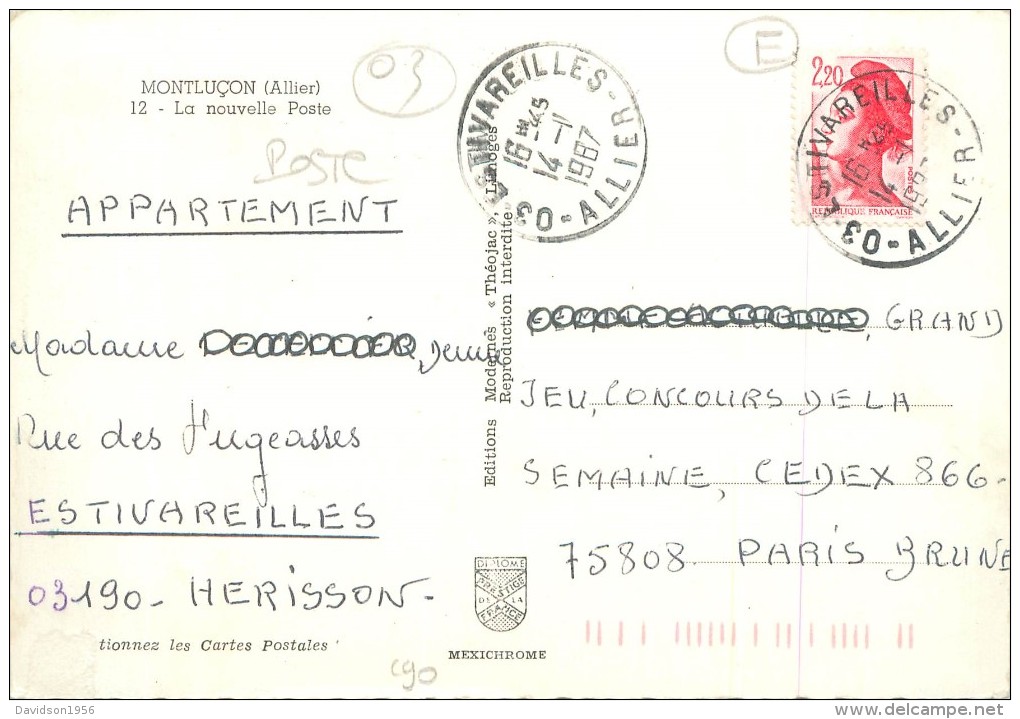 MONTLUÇON (Allier)
12 - La nouvelle Poste
03
POSTE
APPARTEMENT
Madame , Denise
Rue des Jugeasses
ESTIVAREILLES
03190 - HERISSON -
tionnez les Cartes Postales
c90
Editions Modernes « Théojac », Limoges
Reproduction interdite
DIPLOME
PRESTIGE
DE LA
FRANCE
MEXICHROME
ESTIVAREILLES -
16 H 45
14 - 1
1987
03 - ALLIER
E
2,20
REPUBLIQUE FRANÇAISE
ESTIVAREILLES -
16 H 45
14 - 1
1987
03 - ALLIER
, GRAND
JEU, CONCOURS DE LA
SEMAINE, CEDEX 866 -
75808 PARIS BRUNE
Davidson1956
www.delcampe.net